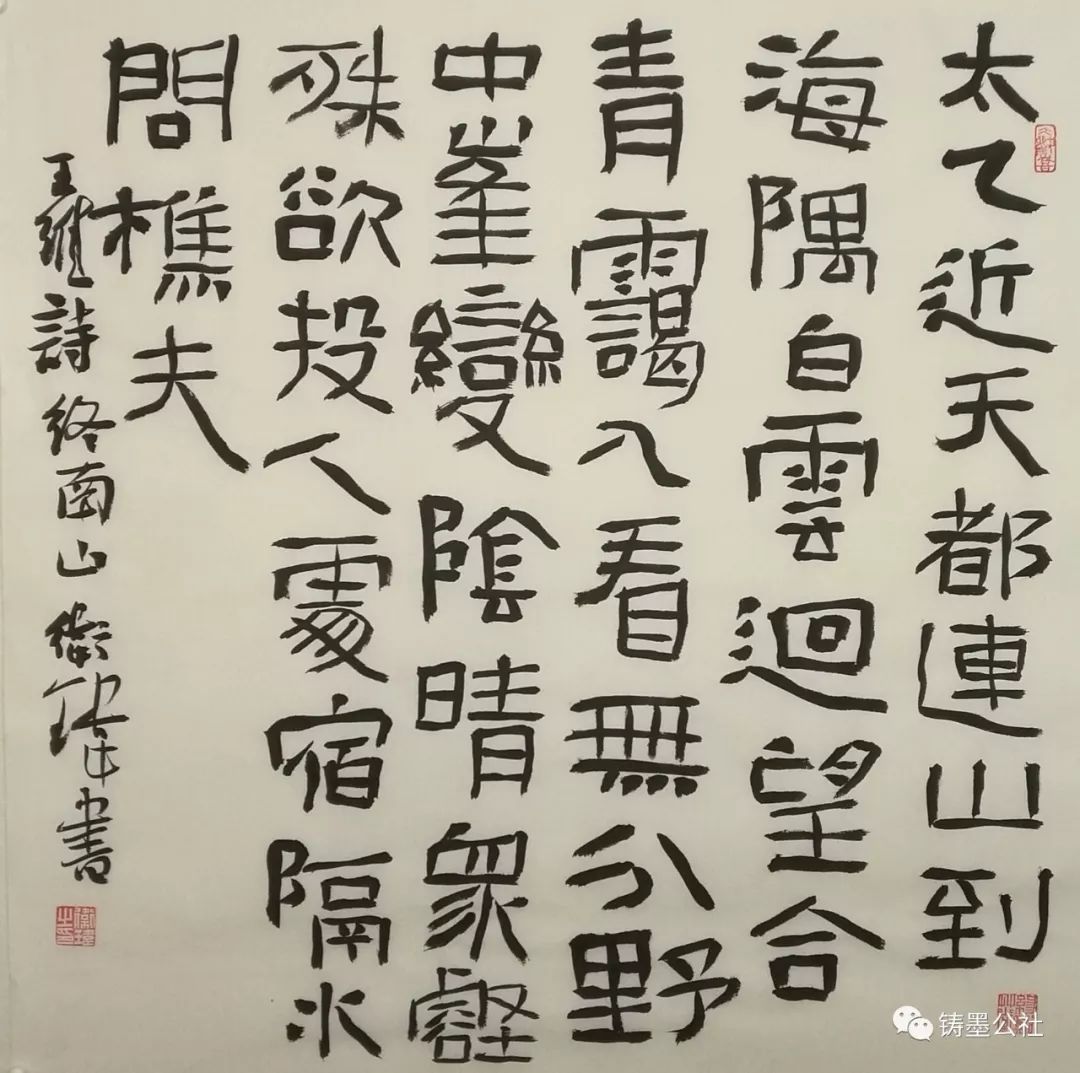 太乙近天都連山到
海隅白雲迴望合
青靄入看無分野
中峯變陰晴眾壑
殊欲投人處宿隔水
問樵夫
王維詩終南山衛瑋書
衛瑋之印
铸墨公社